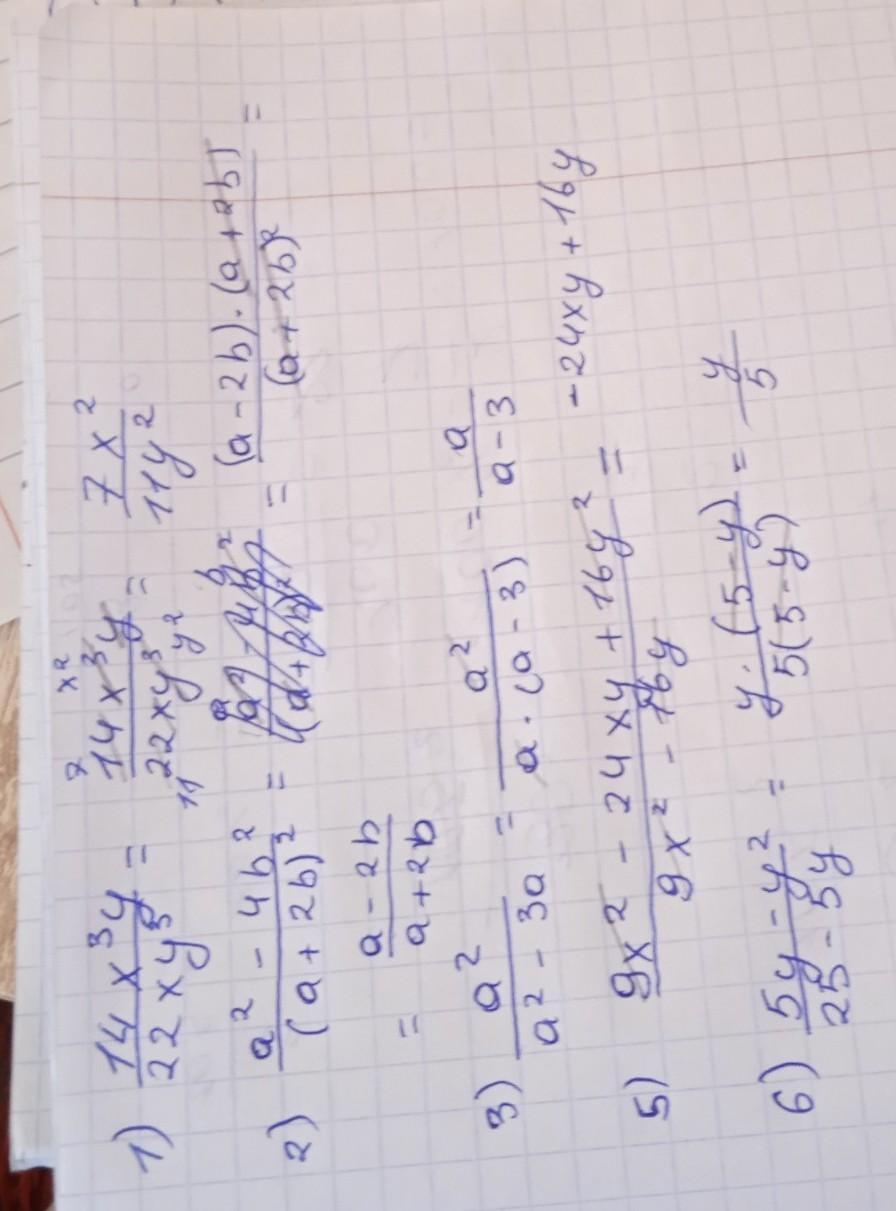 1) 14x³y / 22xy³ = 14x³y / 22xy³ = 7x² / 11y²
7 x²
11 y²
2) a² - 4b² / (a + 2b)² = = (a - 2b) · (a + 2b) / (a + 2b)² =
= a - 2b / a + 2b
3) a² / a² - 3a = a² / a · (a - 3) = a / a - 3
5) 9x² - 24xy + 16y² / 9x² - 16y = - 24xy + 16y
6) 5y - y² / 25 - 5y = y · (5 - y) / 5(5 - y) = y / 5